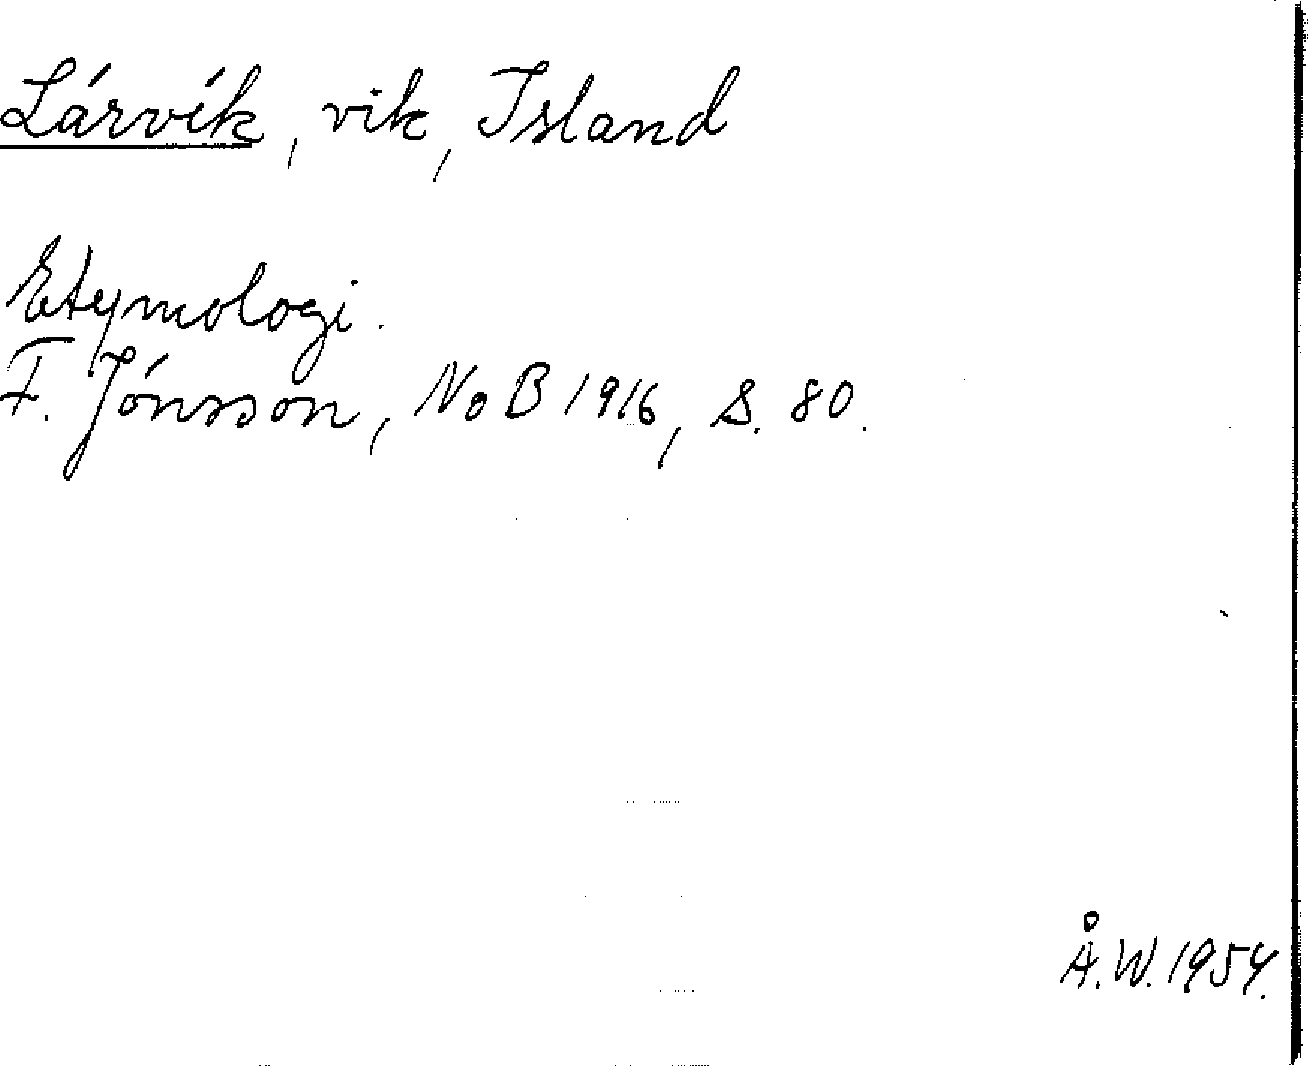 Lárvík, vik, Island
Etymologi.
F. Jónsson, NoB 1916, S. 80.
Å.W. 1954.